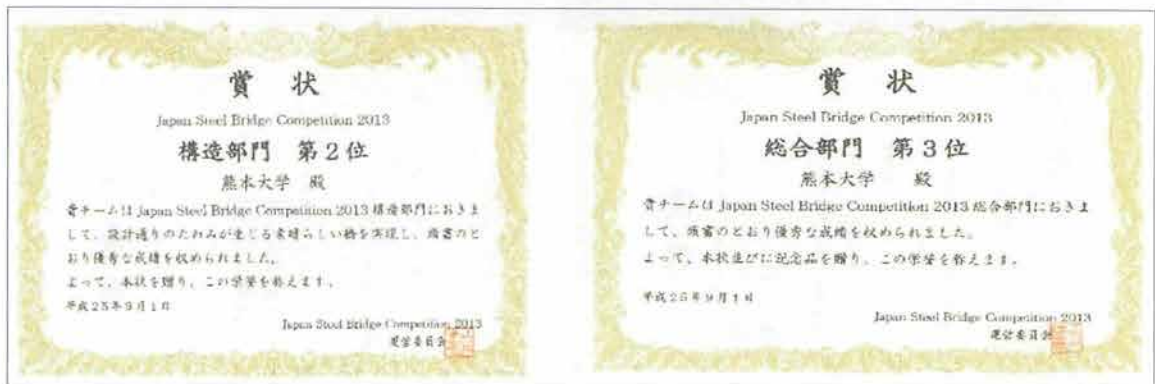 賞状
Japan Steel Bridge Competition 2013
構造部門 第2位
熊本大学 殿
貴チームは Japan Steel Bridge Competition 2013 構造部門におきま
して、設計通りのたわみが生じる素晴らしい橋を実現し、頭書のと
おり優秀な成績を収められました。
よって、本状を贈り、この学誉を称えます。
平成25年9月1日
Japan Steel Bridge Competition 2013
運営委員会
賞状
Japan Steel Bridge Competition 2013
総合部門 第3位
熊本大学 殿
貴チームは Japan Steel Bridge Competition 2013 総合部門におきま
して、頭書のとおり優秀な成績を収められました。
よって、本状並びに記念品を贈り、この学誉を称えます。
平成25年9月1日
Japan Steel Bridge Competition 2013
運営委員会